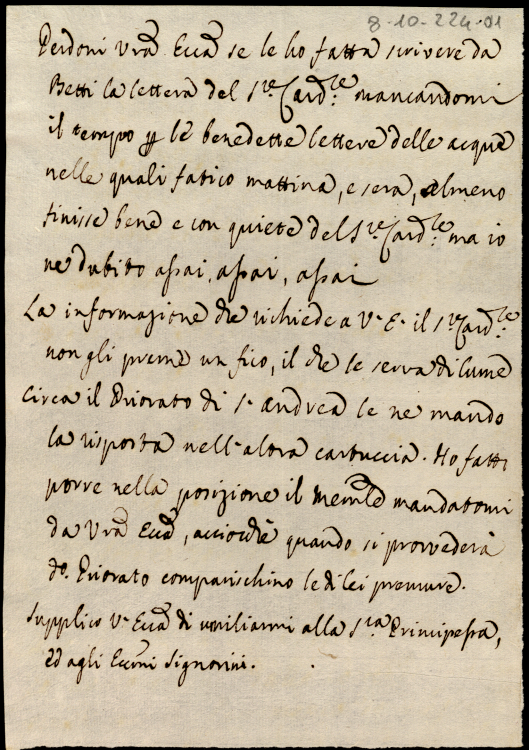 8-10-224-01
Perdoni Vrã Eccã se le ho fatta scrivere da
Betti la lettera del Sre. Cardle. mancandomi
il tempo p le benedette lettere delle acque
nelle quali fatico mattina, e sera, almeno
finisse bene e con quiete del Sre. Cardle. ma io
ne dubito assai, assai, assai
La informazione che richiede a V. E. il Sre Cardle.
non gli preme un fico, il che le serva di lume
Circa il Priorato di S. Andrea le ne mando
la risposta nell'altra cartuccia. Ho fatti
porre nella posizione il Memle mandatomi
da Vrã Eccã, acciocchè quando si provvederà
do. Priorato comparischino le di lei premure.
Supplico V. Eccã di umiliarmi alla Sra. Principessa,
ed agli Eccmi Signorini.